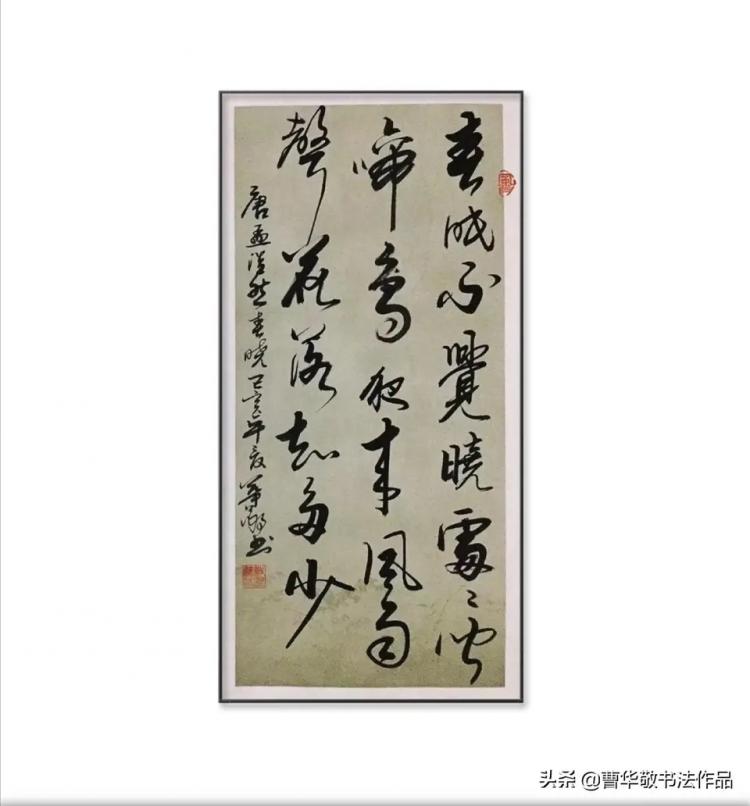 春眠不覺曉處々聞
啼鳥夜来風雨
聲花落知多少
唐孟浩然春晓己亥年夏華敬书
头条 @曹华敬书法作品